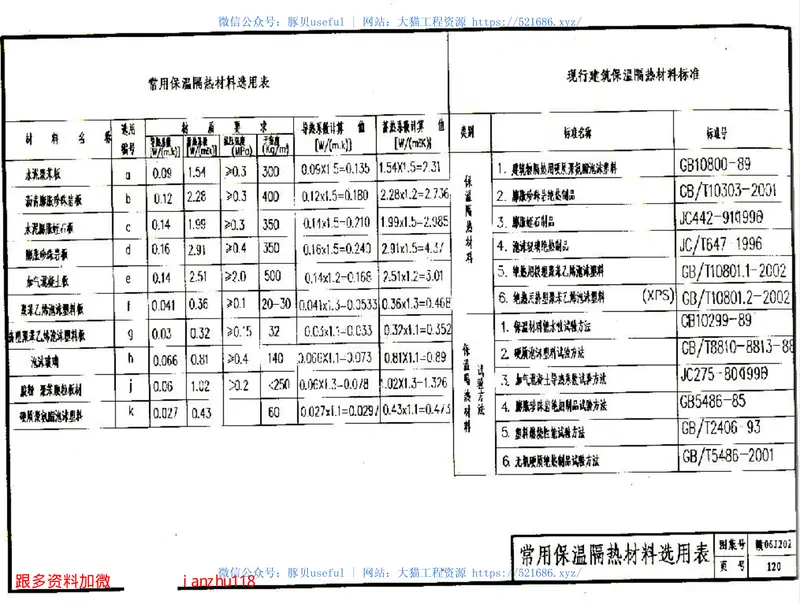 微信公众号：豚贝useful | 网站：大猫工程资源 https://521686.xyz/
常用保温隔热材料选用表
现行建筑保温隔热材料标准
材料名称 选用编号 材质要求 导热系数计算值 [W/(m.k)] 蓄热系数计算值 [W/(m²k)]
导热系数 [W/(m.k)] 蓄热系数 [W/(m²k)] 抗压强度 (MPa) 干密度 (Kg/m³)
水泥聚苯板 a 0.09 1.54 ≥0.3 300 0.09x1.5=0.135 1.54x1.5=2.31
沥青膨胀珍珠岩板 b 0.12 2.28 ≥0.3 400 0.12x1.5=0.180 2.28x1.2=2.736
水泥膨胀蛭石板 c 0.14 1.99 ≥0.3 350 0.14x1.5=0.210 1.99x1.5=2.985
膨胀珍珠岩板 d 0.16 2.91 ≥0.4 350 0.16x1.5=0.240 2.91x1.5=4.37
加气混凝土板 e 0.14 2.51 ≥2.0 500 0.14x1.2=0.168 2.51x1.2=3.01
聚苯乙烯泡沫塑料板 f 0.041 0.36 ≥0.1 20-30 0.041x1.3=0.0533 0.36x1.3=0.468
挤塑聚苯乙烯泡沫塑料板 g 0.03 0.32 ≥0.15 32 0.03x1.1=0.033 0.32x1.1=0.352
泡沫玻璃 h 0.066 0.81 ≥0.4 140 0.066X1.1=0.073 0.81X1.1=0.89
胶粉 聚苯颗粒板材 j 0.06 1.02 ≥0.2 <250 0.06X1.3=0.078 1.02X1.3=1.326
硬质聚氨酯泡沫塑料 k 0.027 0.43 60 0.027x1.1=0.0297 0.43x1.1=0.473
类别 标准名称 标准号
保温隔热材料
1. 建筑物隔热用硬质聚氨酯泡沫塑料 GB10800-89
2. 膨胀珍珠岩绝热制品 GB/T10303-2001
3. 膨胀蛭石制品 JC442-91(1996)
4. 泡沫玻璃绝热制品 JC/T647-1996
5. 绝热用模塑聚苯乙烯泡沫塑料 GB/T10801.1-2002
6. 绝热用挤塑聚苯乙烯泡沫塑料 (XPS) GB/T10801.2-2002
保温隔热材料试验方法
1. 保温材料憎水性试验方法 GB10299-89
2. 硬质泡沫塑料试验方法 GB/T8810-8813-88
3. 加气混凝土导热系数试验方法 JC275-80(1996)
4. 膨胀珍珠岩绝热制品试验方法 GB5486-85
5. 塑料燃烧性能试验方法 GB/T2406-93
6. 无机硬质绝热制品试验方法 GB/T5486-2001
常用保温隔热材料选用表 图集号 赣06J202
页号 120
跟多资料加微 jianzhu118
微信公众号：豚贝useful | 网站：大猫工程资源 https://521686.xyz/